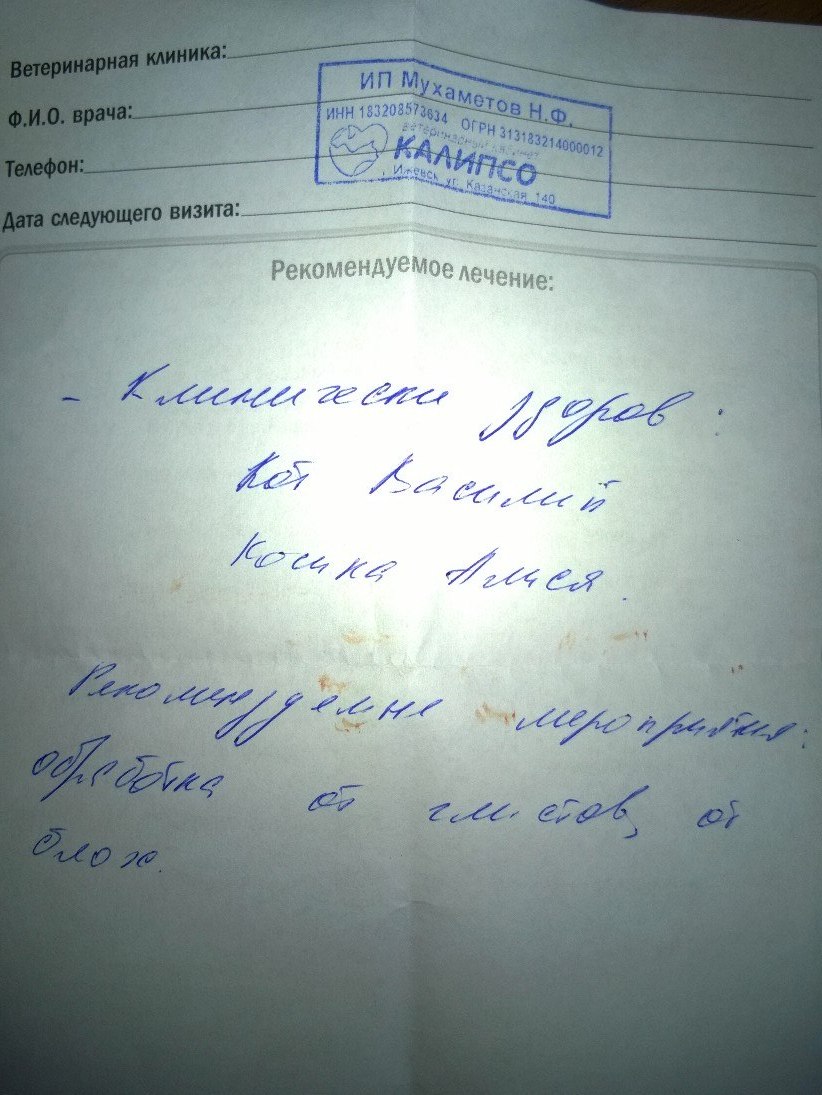 Ветеринарная клиника:
Ф.И.О. врача:
Телефон:
Дата следующего визита:
ИП Мухаметов Н.Ф.
ИНН 183208573634 ОГРН 313183214000012
ветеринарный кабинет
КАЛИПСО
Ижевск ул. Казанская 140
Рекомендуемое лечение:
- Клинически здоров:
Кот Василий
Кошка Алися.
Рекомендуемые мероприятия:
обработка от глистов, от
блох.